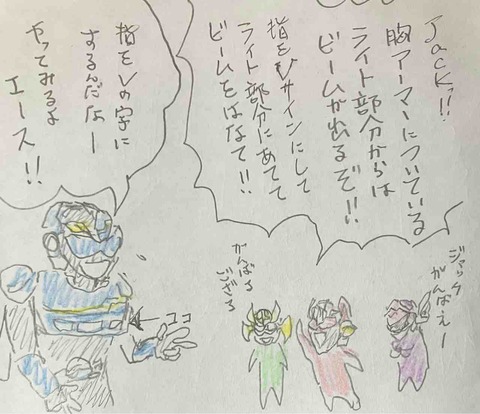 Jackっ!!
胸アーマーについている
ライト部分からは
ビームが出るぞ!!
指をVサインにして
ライト部分にあてて
ビームをはなて!!
指をVの字に
するんだなー
やってみるよ
エース!!
ジャック
がんばえー
がんばる
ござる
ココ